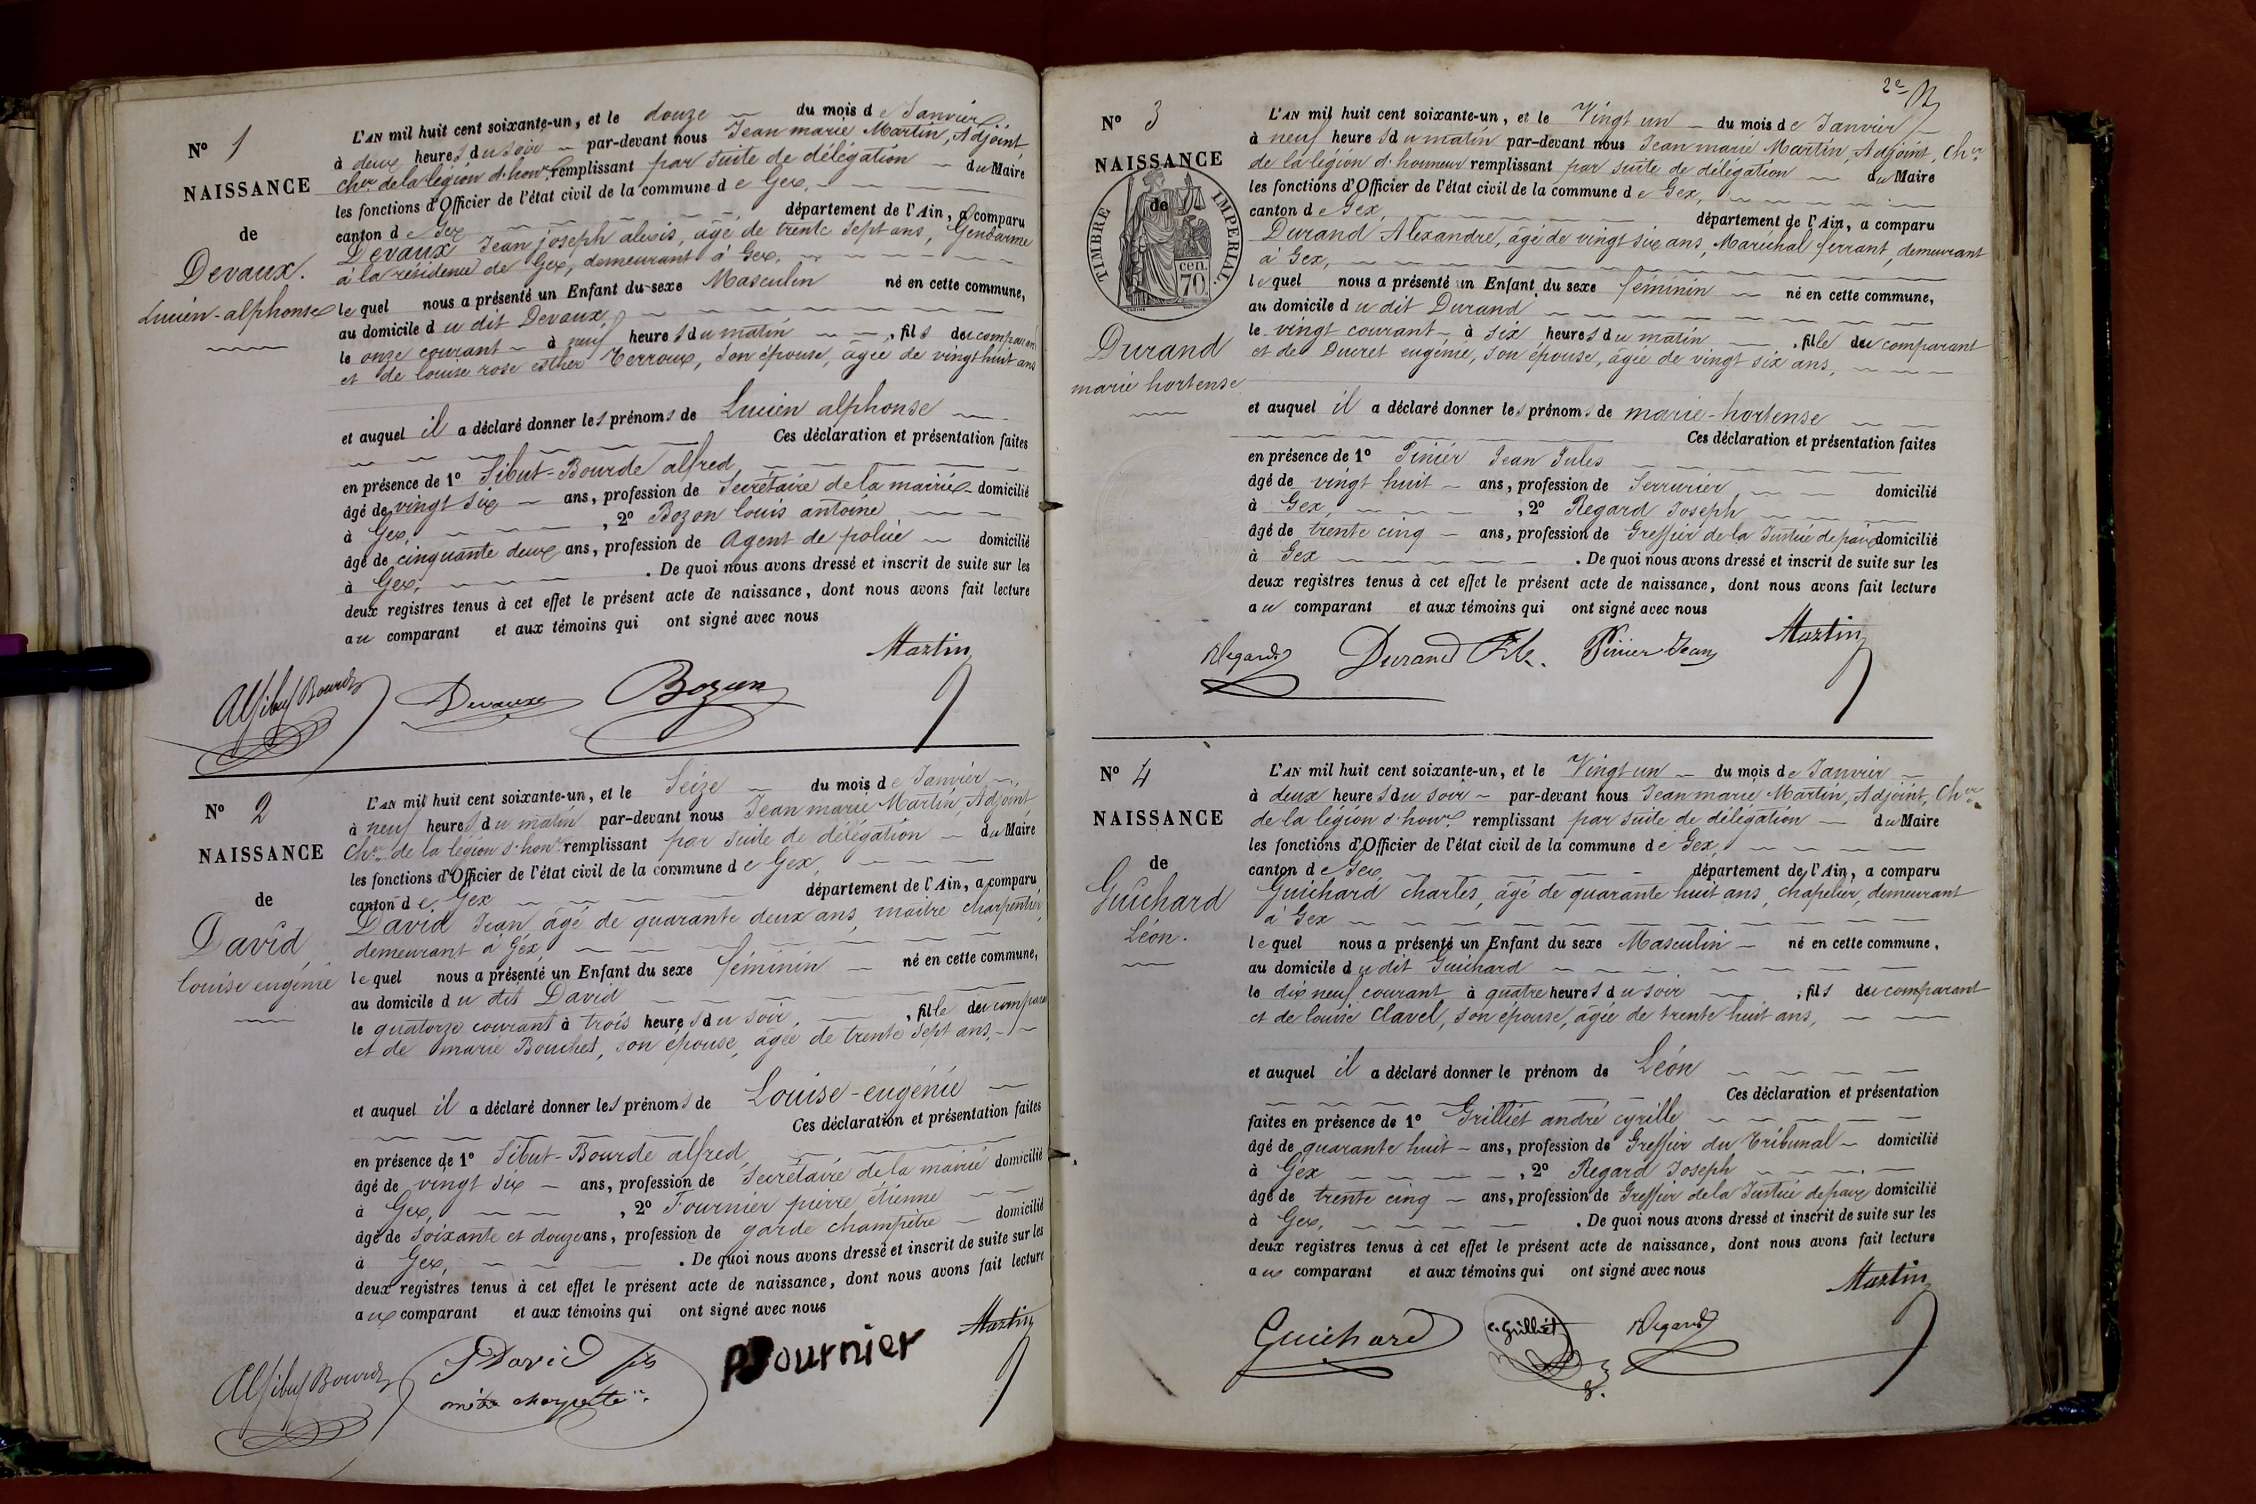 N° 1
NAISSANCE
de
Devaux.
Lucien-alphonse
L'AN mil huit cent soixante-un, et le douze du mois de Janvier
à deux heures du soir par-devant nous Jean marie Martin, Adjoint,
Cher de la légion d'honr remplissant par suite de délégation du Maire
les fonctions d'Officier de l'état civil de la commune de Gex,
canton de Gex département de l'Ain, a comparu
Devaux Jean joseph alexis, âgé de trente sept ans, Gendarme
à la résidence de Gex, demeurant à Gex,
lequel nous a présenté un Enfant du sexe Masculin né en cette commune,
au domicile du dit Devaux,
le onze courant à neuf heures du matin, fils du comparant
et de louise rose esther Terroux, son épouse, âgée de vingt huit ans
et auquel il a déclaré donner les prénoms de Lucien alphonse
Ces déclaration et présentation faites
en présence de 1° Sibut-Bourde alfred,
âgé de vingt six ans, profession de Secrétaire de la mairie domicilié
à Gex, , 2° Bozon louis antoine
âgé de cinquante deux ans, profession de Agent de police domicilié
à Gex, . De quoi nous avons dressé et inscrit de suite sur les
deux registres tenus à cet effet le présent acte de naissance, dont nous avons fait lecture
au comparant et aux témoins qui ont signé avec nous
Martin
ASibut Bourde Devaux Bozon
N° 2
NAISSANCE
de
David
louise eugénie
L'AN mil huit cent soixante-un, et le Seize du mois de Janvier
à neuf heures du matin par-devant nous Jean marie Martin, Adjoint
Cher de la légion d'honr remplissant par suite de délégation du Maire
les fonctions d'Officier de l'état civil de la commune de Gex,
canton de Gex département de l'Ain, a comparu
David Jean, âgé de quarante deux ans, maître charpentier,
demeurant à Gex,
lequel nous a présenté un Enfant du sexe féminin né en cette commune,
au domicile du dit David
le quatorze courant à trois heures du soir, , fille du comparant
et de marie Bouchet, son épouse, âgée de trente sept ans,
et auquel il a déclaré donner les prénoms de Louise-eugénie
Ces déclaration et présentation faites
en présence de 1° Sibut-Bourde alfred,
âgé de vingt six ans, profession de Secrétaire de la mairie domicilié
à Gex, , 2° Fournier pierre étienne
âgé de soixante et douze ans, profession de garde champêtre domicilié
à Gex, . De quoi nous avons dressé et inscrit de suite sur les
deux registres tenus à cet effet le présent acte de naissance, dont nous avons fait lecture
aux comparant et aux témoins qui ont signé avec nous
Martin
ASibut Bourde JDavid PFournier
2e
N° 3
NAISSANCE
de
TIMBRE IMPERIAL.
70 cen.
Durand
marie hortense
L'AN mil huit cent soixante-un, et le Vingt un du mois de Janvier
à neuf heures du matin par-devant nous Jean marie Martin, Adjoint, Cher
de la légion d'honneur remplissant par suite de délégation du Maire
les fonctions d'Officier de l'état civil de la commune de Gex,
canton de Gex, département de l'Ain, a comparu
Durand Alexandre, âgé de vingt six ans, Maréchal ferrant, demeurant
à Gex,
lequel nous a présenté un Enfant du sexe féminin né en cette commune,
au domicile du dit Durand
le vingt courant à six heures du matin , fille du comparant
et de Ducret eugénie, son épouse, âgée de vingt six ans,
et auquel il a déclaré donner les prénoms de marie-hortense
Ces déclaration et présentation faites
en présence de 1° Pinier Jean Jules
âgé de vingt huit ans, profession de Serrurier domicilié
à Gex, , 2° Regard Joseph
âgé de trente cinq ans, profession de Greffier de la Justice de paix domicilié
à Gex . De quoi nous avons dressé et inscrit de suite sur les
deux registres tenus à cet effet le présent acte de naissance, dont nous avons fait lecture
au comparant et aux témoins qui ont signé avec nous
Regard Durand Pinier Jean Martin
N° 4
NAISSANCE
de
Guichard
Léon.
L'AN mil huit cent soixante-un, et le Vingt un du mois de Janvier
à deux heures du soir par-devant nous Jean marie Martin, Adjoint, Cher
de la légion d'honr remplissant par suite de délégation du Maire
les fonctions d'Officier de l'état civil de la commune de Gex,
canton de Gex, département de l'Ain, a comparu
Guichard charles, âgé de quarante huit ans, chapelier, demeurant
à Gex
lequel nous a présenté un Enfant du sexe Masculin né en cette commune,
au domicile du dit Guichard
le dix neuf courant à quatre heures du soir , fils du comparant
et de louise Clavel, son épouse, âgée de trente huit ans,
et auquel il a déclaré donner le prénom de Léon
Ces déclaration et présentation
faites en présence de 1° Grilliet andré cyrille
âgé de quarante huit ans, profession de Greffier du Tribunal domicilié
à Gex , 2° Regard Joseph
âgé de trente cinq ans, profession de Greffier de la Justice de paix domicilié
à Gex, . De quoi nous avons dressé et inscrit de suite sur les
deux registres tenus à cet effet le présent acte de naissance, dont nous avons fait lecture
aux comparant et aux témoins qui ont signé avec nous
Martin
Guichard c. Grilliet Regard